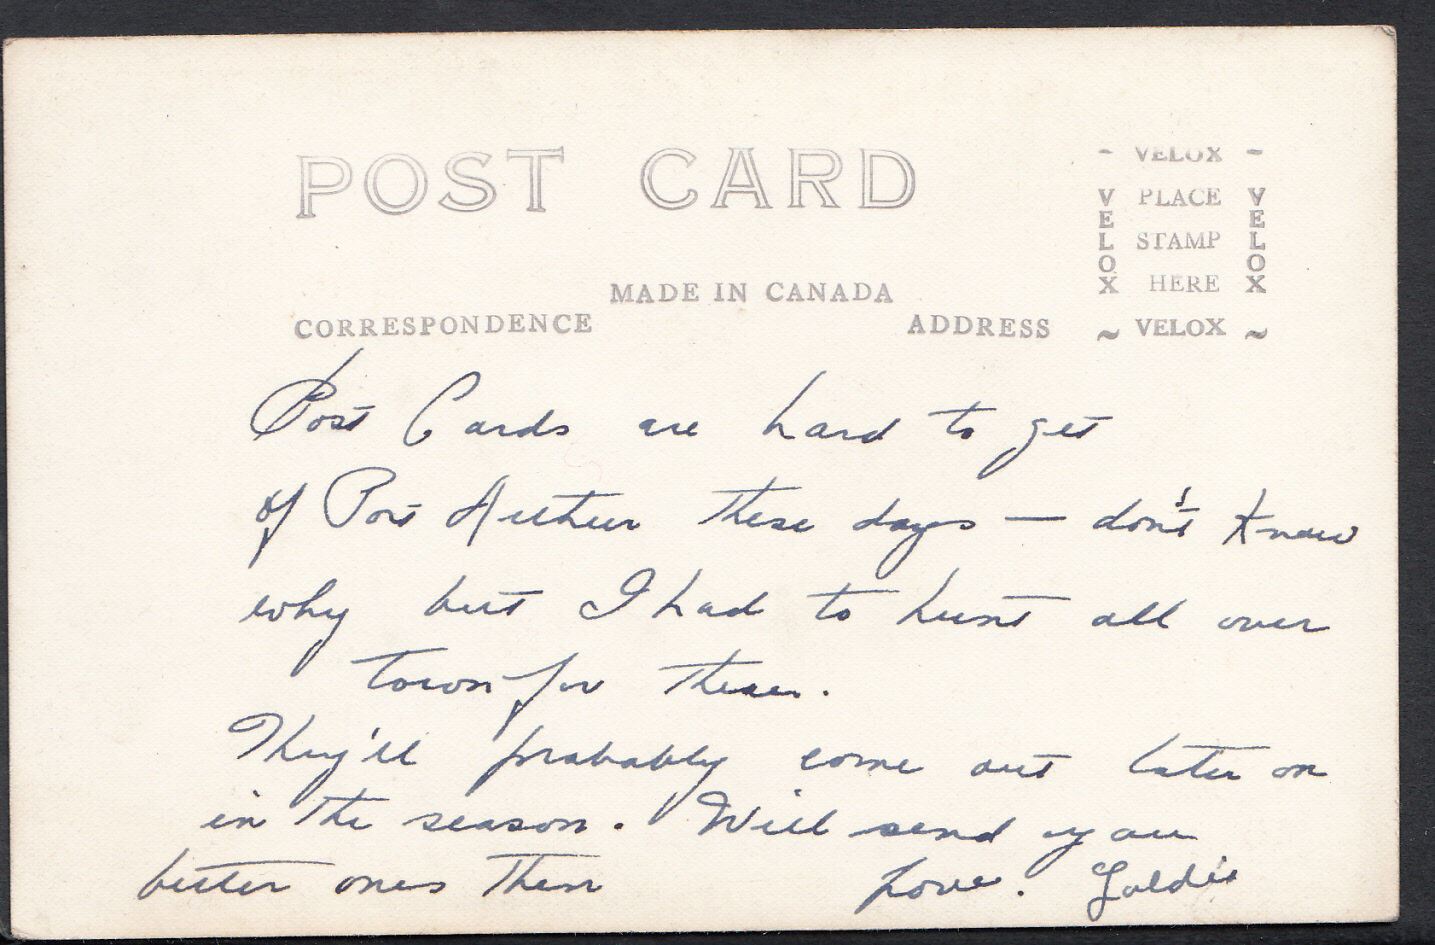 POST CARD
- VELOX -
VELOX
PLACE
STAMP
HERE
VELOX
~ VELOX ~
MADE IN CANADA
CORRESPONDENCE
ADDRESS
Post Cards are hard to get
of Port Arthur these days — don't know
why but I had to hunt all over
town for these.
They'll probably come out later on
in the season. Will send you
better ones then Love. Goldie